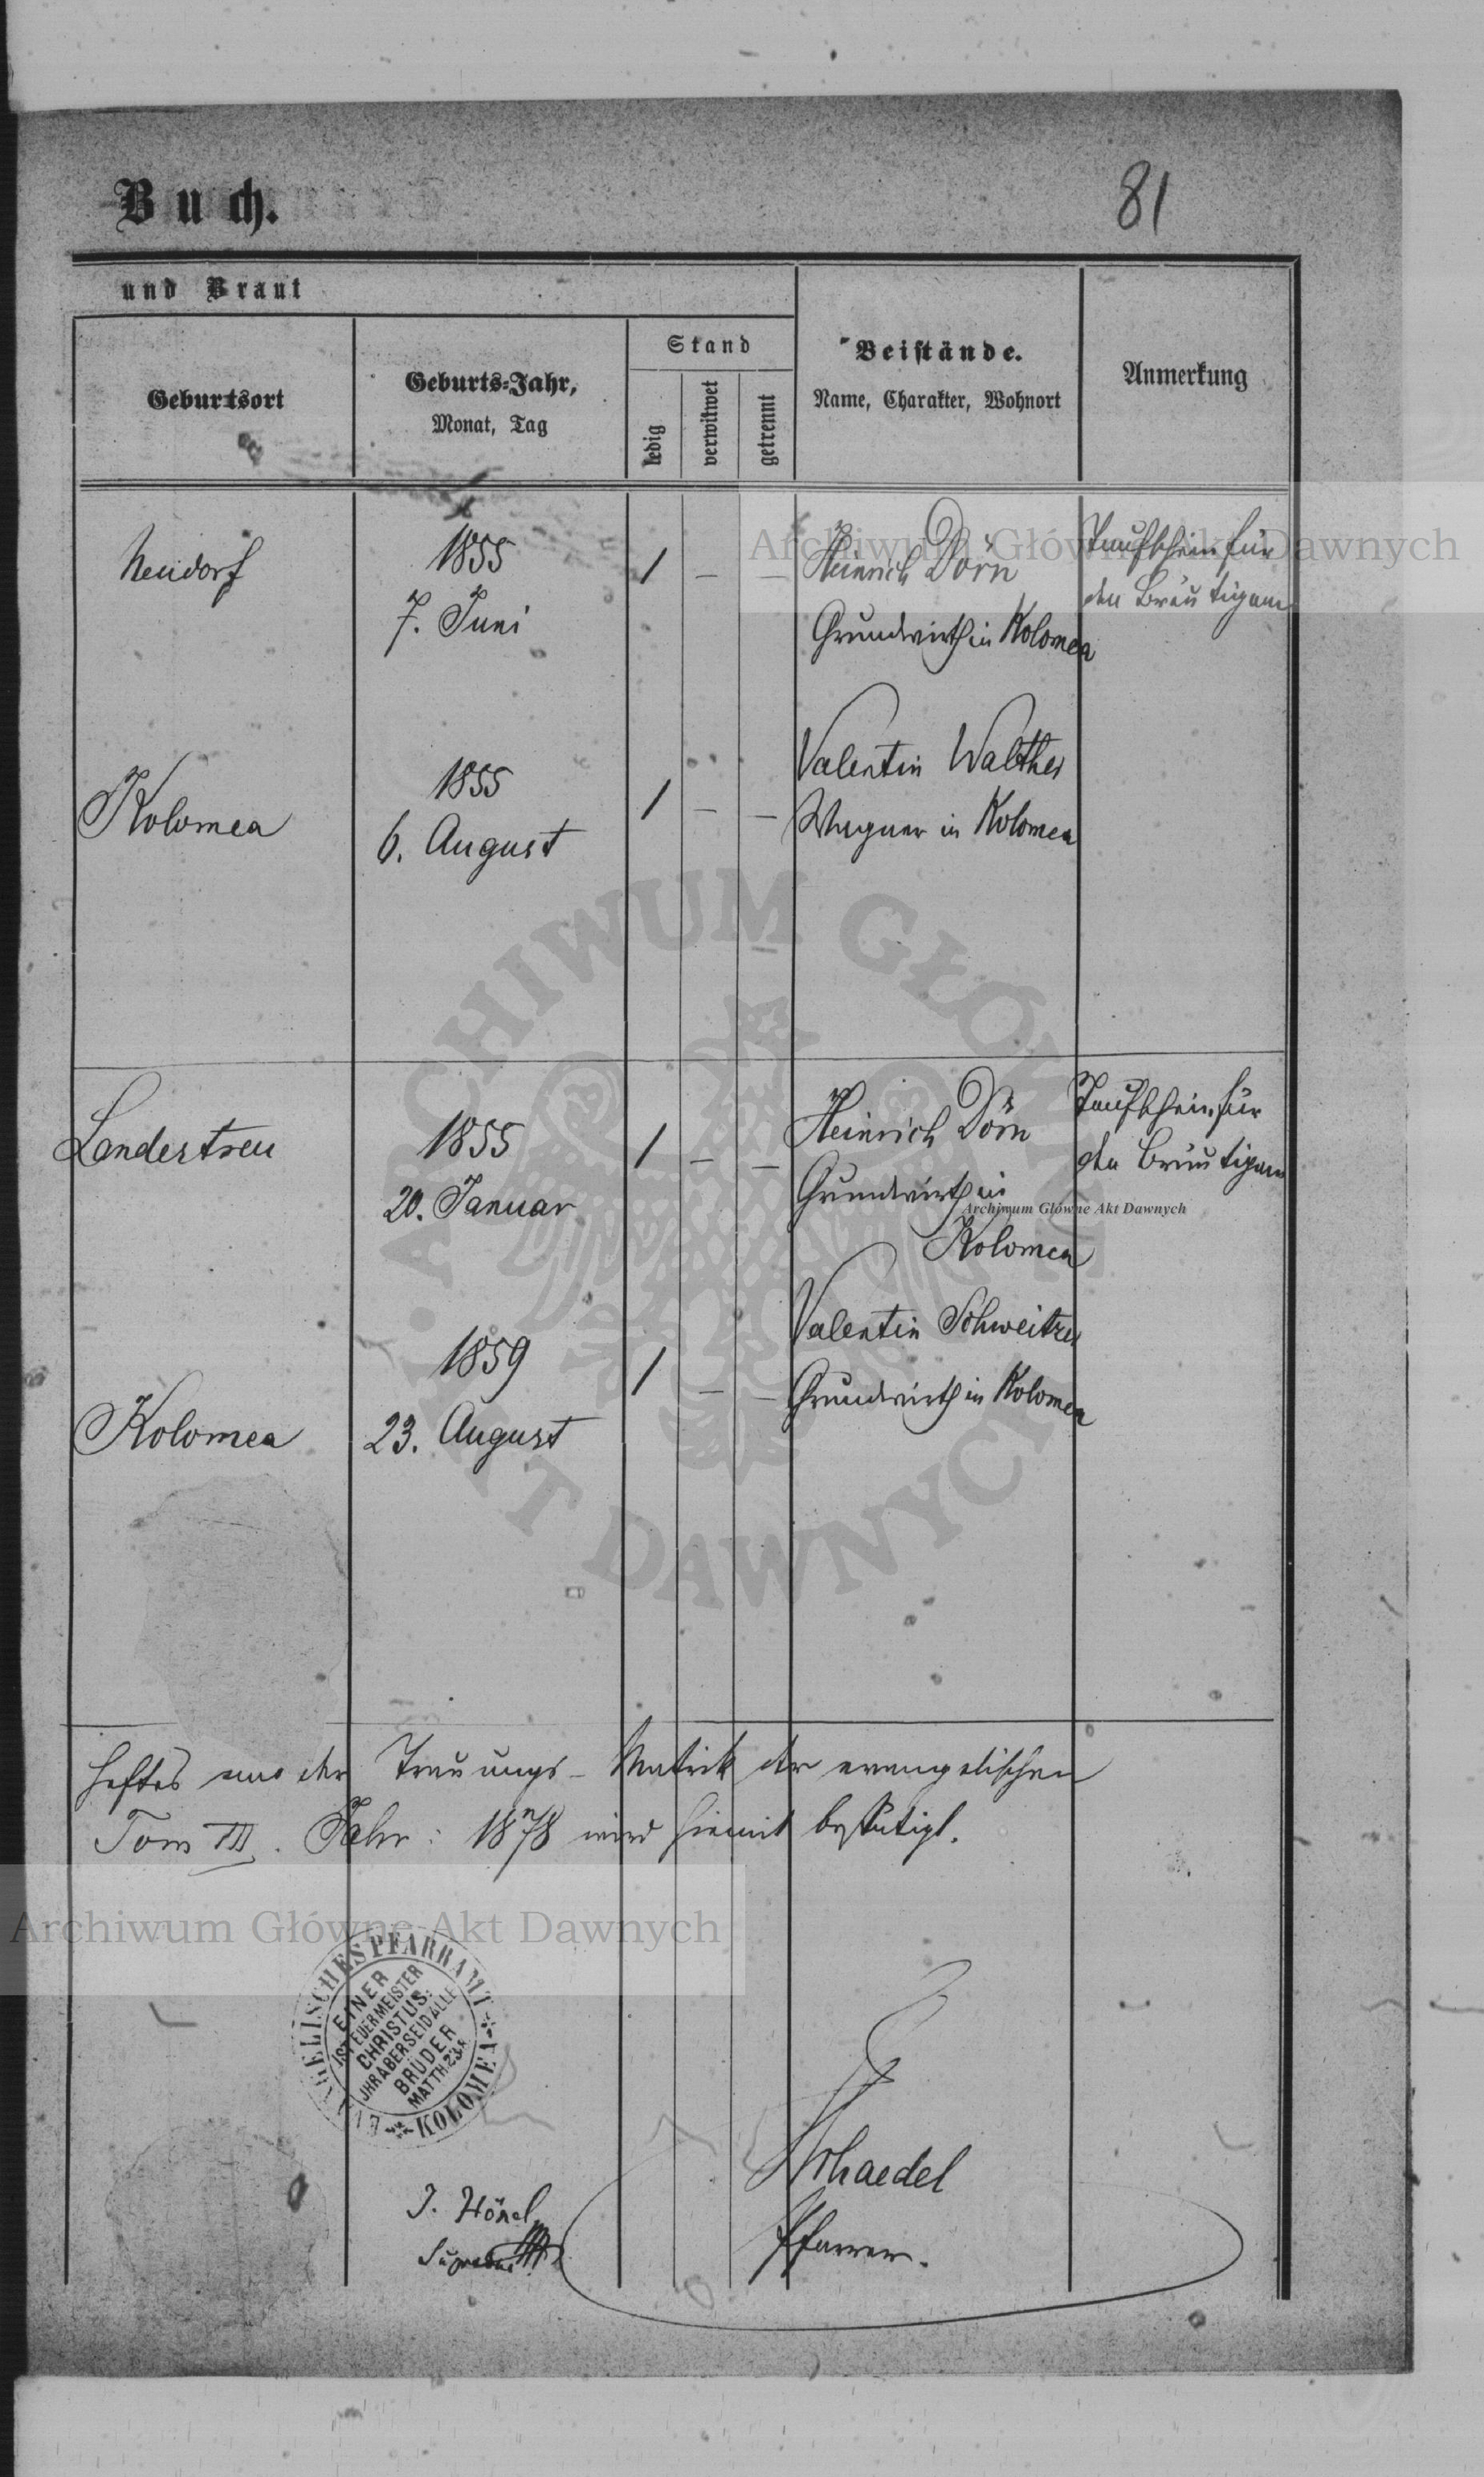 Buch.
81
und Braut
Geburtsort
Geburts-Jahr,
Monat, Tag
Stand
ledig
verwitwet
getrennt
Beistände.
Name, Charakter, Wohnort
Anmerkung
Neudorf
1855
7. Juni
/ — —
Heinrich Dörn
Grundwirth in Kolomea
Taufschein für
den Bräutigam
Kolomea
1855
6. August
/ — —
Valentin Walther
Wagner in Kolomea
Landestreu
1855
20. Januar
/ — —
Heinrich Dörn
Grundwirth in
Kolomea
Taufschein für
den Bräutigam
Kolomea
1859
23. August
/ — —
Valentin Schweitzer
Grundwirth in Kolomea
Heftes aus der Trauungs-Matrik der evangelischen
Tom III. Jahr: 1878 wird hiemit bestätigt.
EVANGELISCHES PFARRAMT
KOLOMEA
EINER
IST EUER MEISTER
CHRISTUS:
IHR ABER SEID ALLE
BRÜDER
MATTH. 23.8
J. Hönel
Pfarrer.
Archiwum Główne Akt Dawnych
Archiwum Główne Akt Dawnych
Archiwum Główne Akt Dawnych
ARCHIWUM GŁÓWNE AKT DAWNYCH